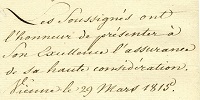 Les Soussignés ont
l'honneur de présenter à
Son Excellence l'assurance
de sa haute considération.
Vienne le 29 Mars 1815.